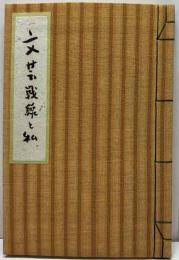 文芸戦線と私